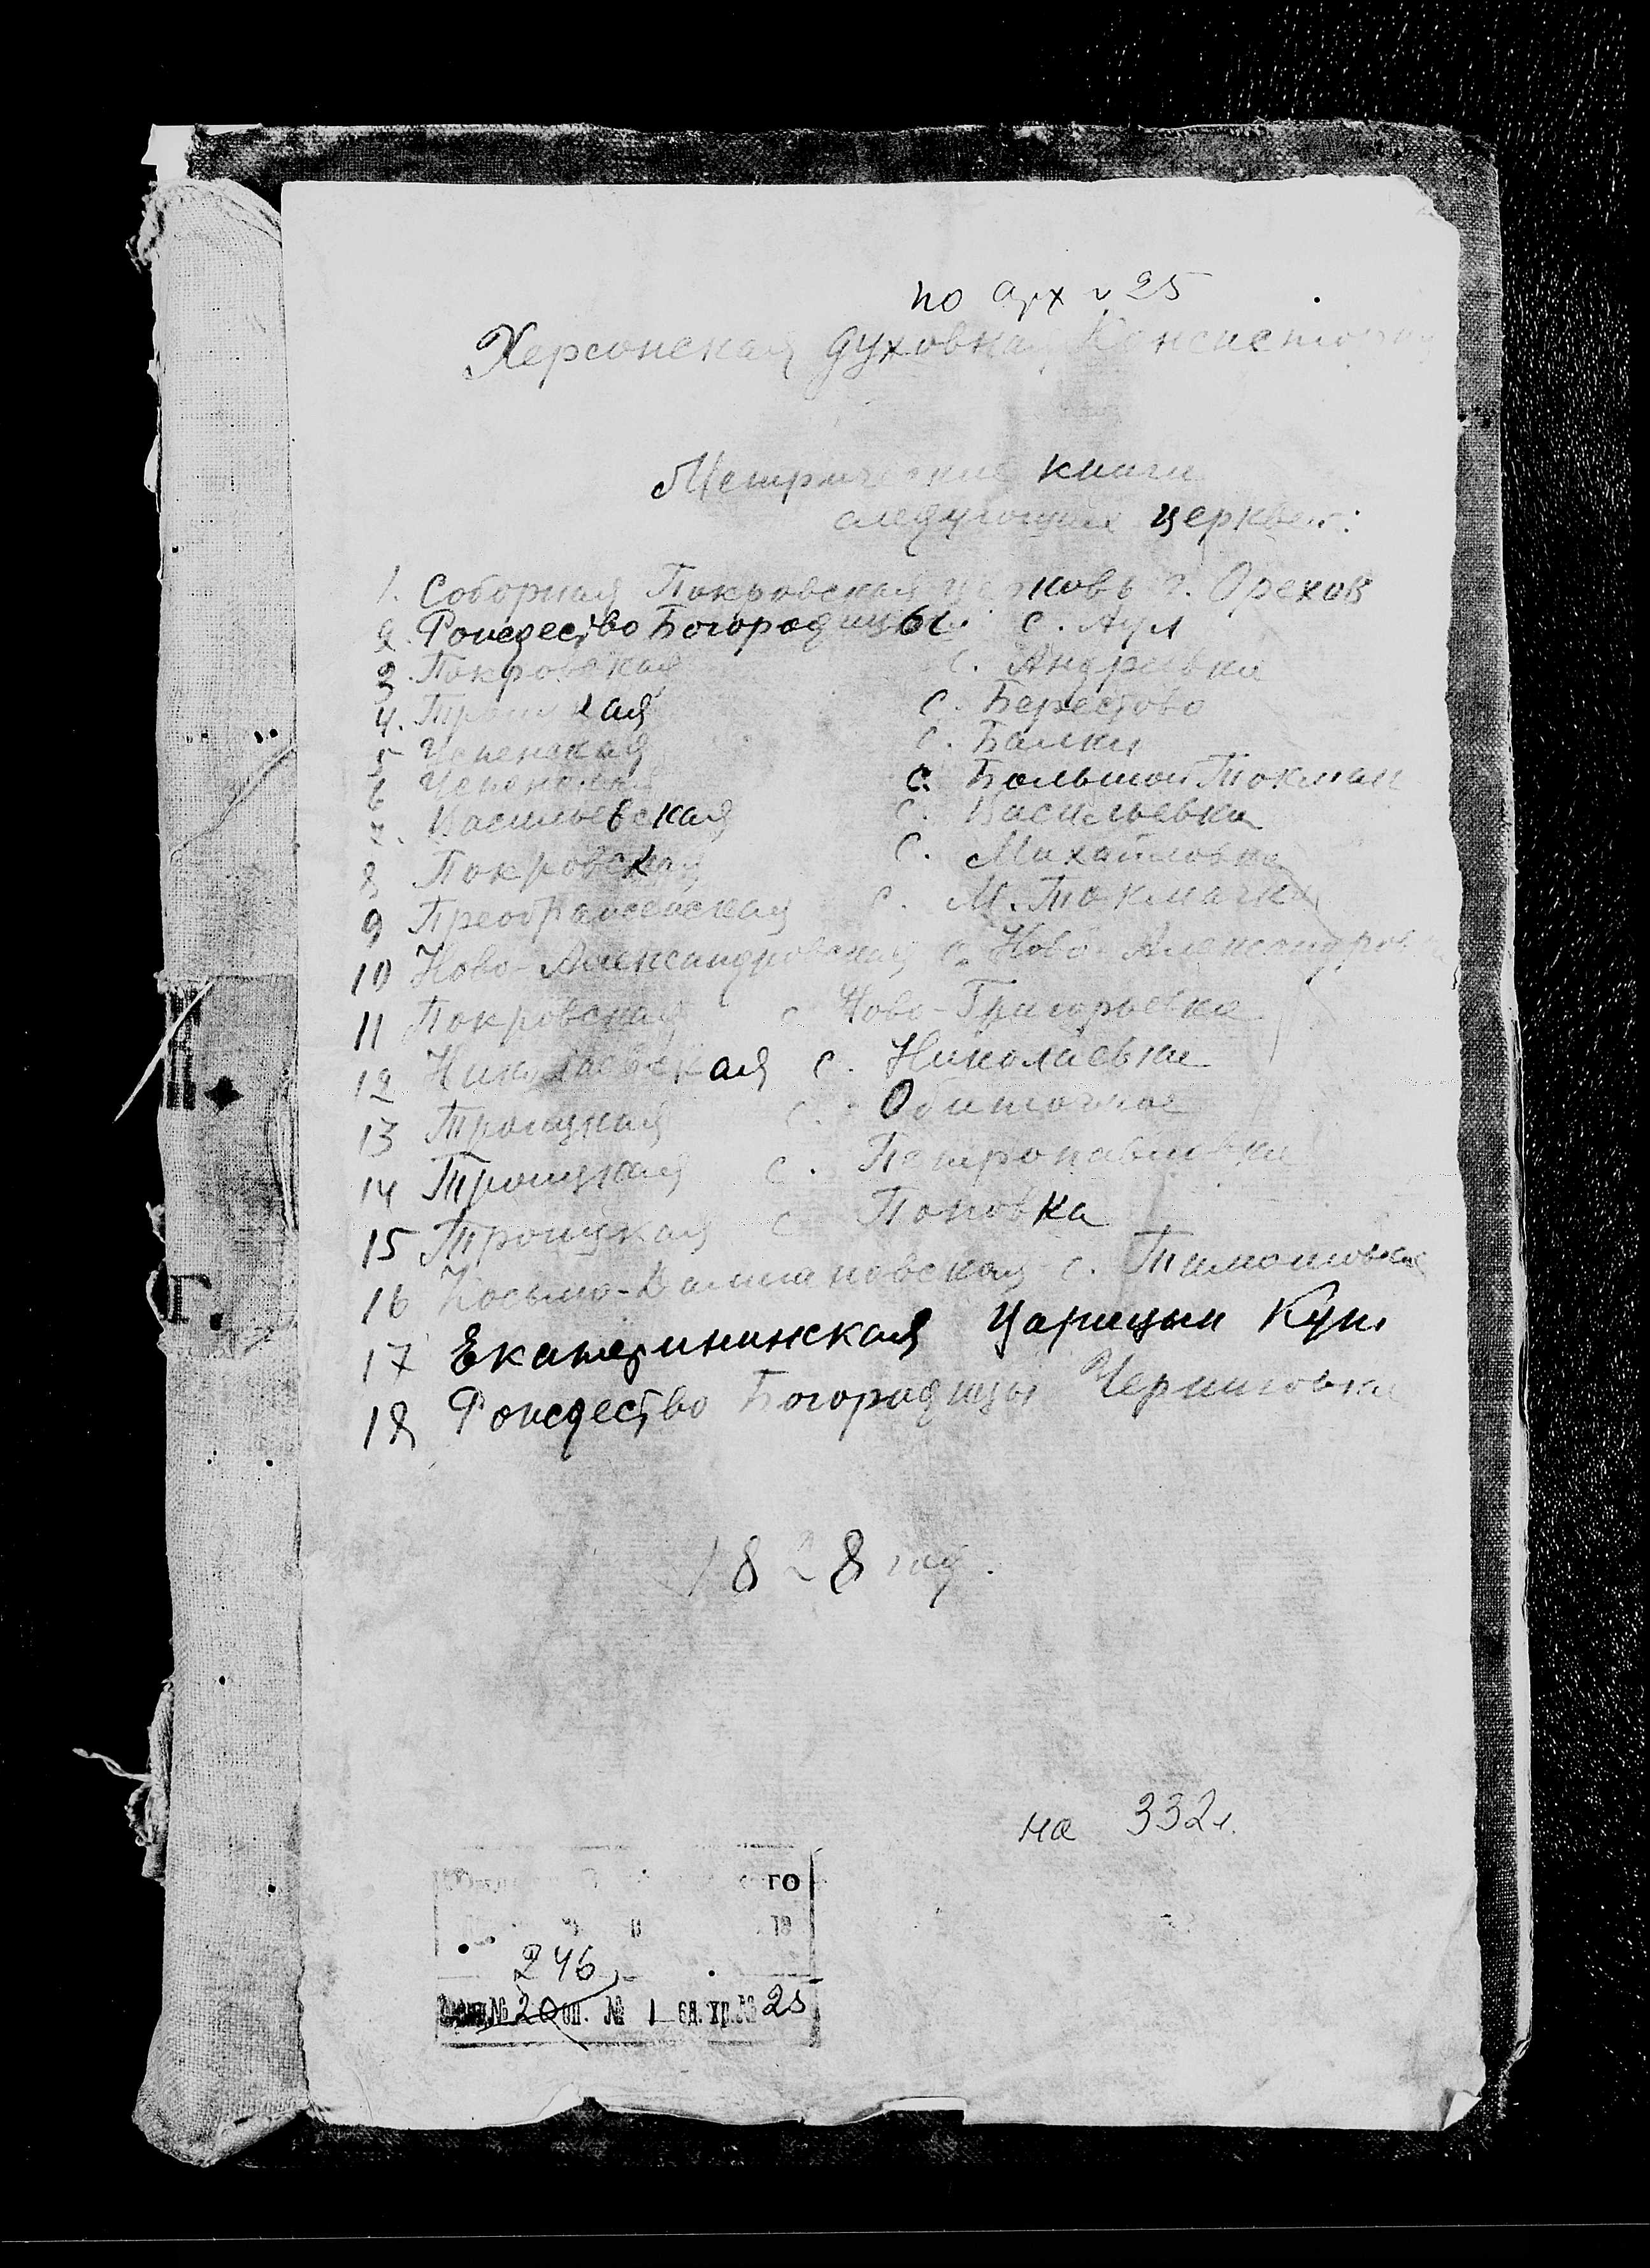 по арх № 25
Херсонская духовная Консистория
Метрические книги
следующих церквей:
1. Соборная Покровская церковь г. Орехов
2. Рождество Богородицы с. Аул
3. Покровская с. Андреевка
4. Троицкая с. Берестово
5 Успенская с. Балки
6 Успенская с. Большой Токмак
7. Васильевская с. Васильевка
8 Покровская с. Михайловка
9 Преображенская с. М. Токмачка
10 Ново-Александровская с. Ново-Александровка
11 Покровская с Ново-Григорьевка
12 Николаевская с. Николаевка
13 Троицкая с. Обиточное
14 Троицкая с. Петропавловка
15 Троицкая с Поповка
16 Косьмо-Дамиановская с. Тимошовка
17 Екатерининская Царицын Кут
18 Рождество Богородицы Черниговка
1828 год.
на 332 л.
го
246
Фонд № 20 оп. № 1 ед. хр. № 25